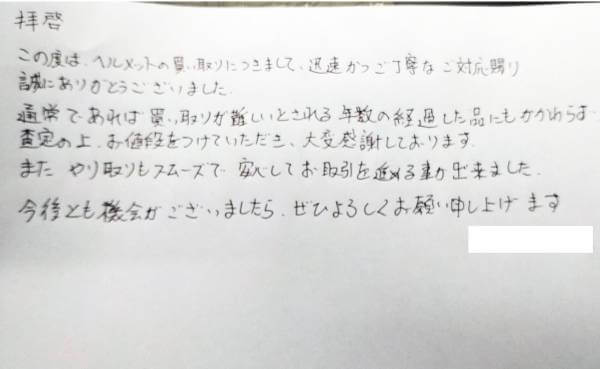 拝啓
この度は、ヘルメットの買い取りにつきまして、迅速かつご丁寧なご対応賜り
誠にありがとうございました。
通常であれば買い取りが難しいとされる年数の経過した品にもかかわらず
査定の上、お値段をつけていただき、大変感謝しております。
また やり取りもスムーズで 安心してお取引を進める事が出来ました。
今後とも機会がございましたら、ぜひよろしくお願い申し上げます